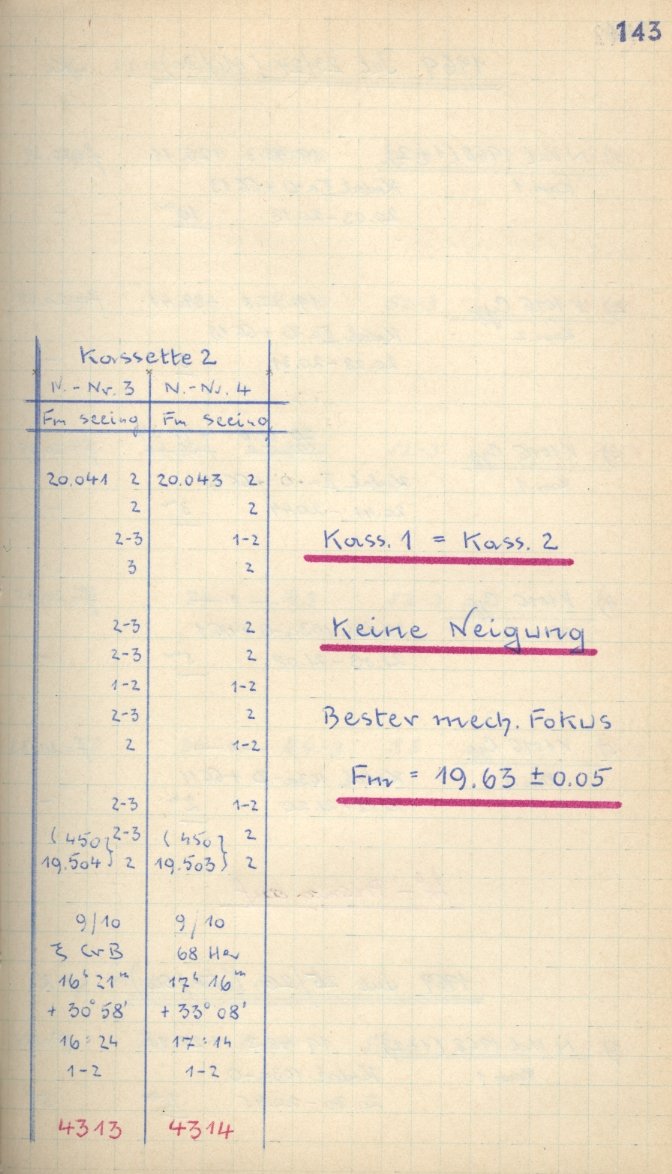 143
Kassette 2
N.-Nr. 3 N.-Nr. 4
Fm seeing Fm seeing
20.041 2 20.043 2
2 2
2-3 1-2
Kass. 1 = Kass. 2
3 2
2-3 2
Keine Neigung
2-3 2
1-2 1-2
2-3 2
Bester mech. Fokus
2 1-2
Fm = 19.63 ± 0.05
2-3 1-2
(450} 2-3 (450} 2
19.504} 2 19.503} 2
9/10 9/10
ξ CrB 68 Her
16ʰ 21ᵐ 17ʰ 16ᵐ
+ 30° 58' + 33° 08'
16:24 17:14
1-2 1-2
4313 4314